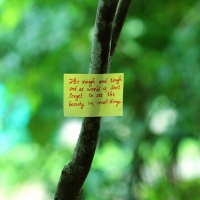 It's rough and tough
out as world is dont
forget to see the
beauty in small things.